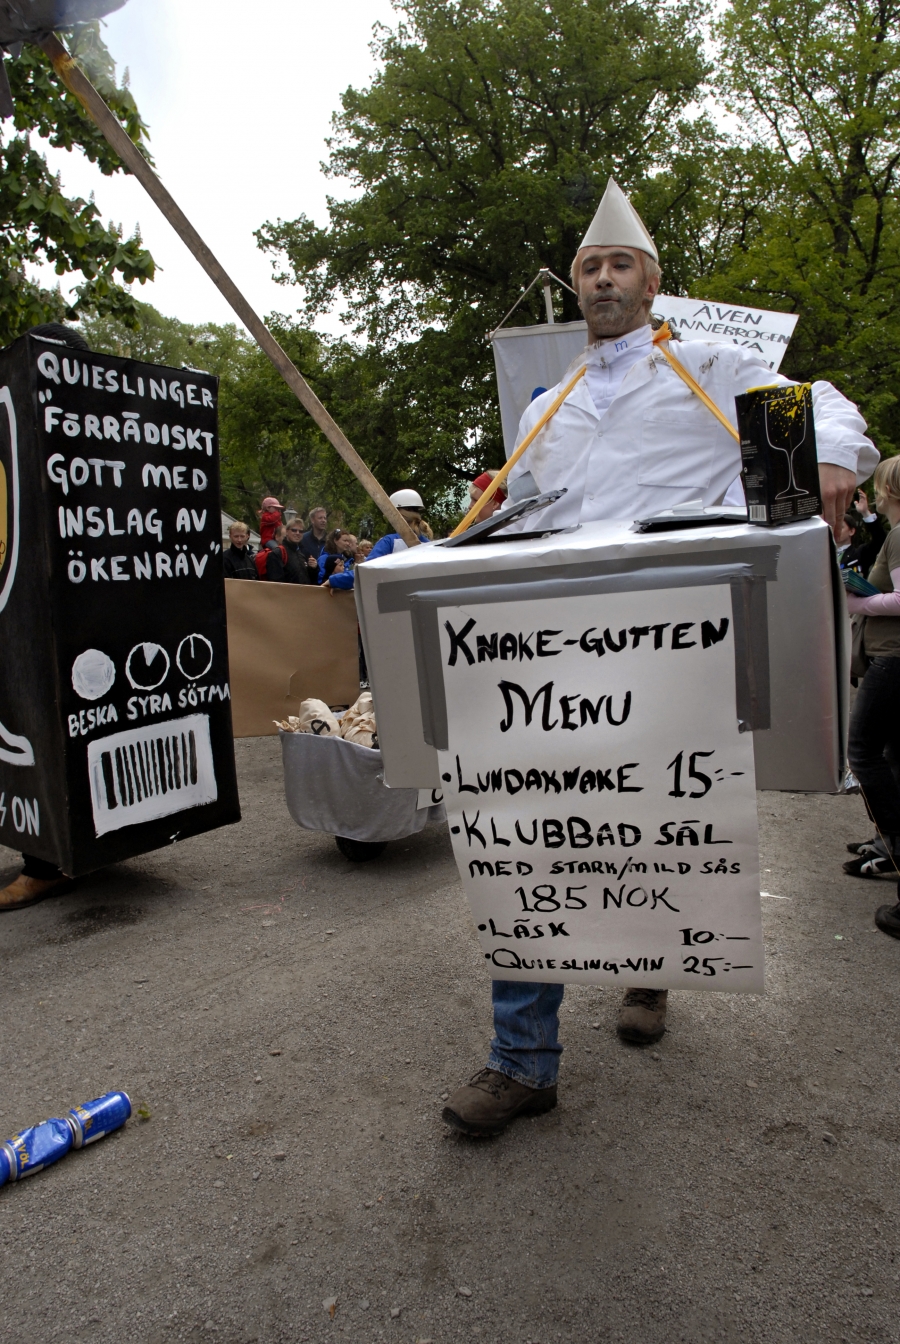 QUIESLINGER
"FÖRRÄDISKT
GOTT MED
INSLAG AV
ÖKENRÄV"
BESKA SYRA SÖTMA
ON
ÄVEN
DANNEBROGEN
VA
m
KNAKE-GUTTEN
MENU
• LUNDAKNAKE 15:-
• KLUBBAD SÄL
MED STARK/MILD SÅS
185 NOK
• LÄSK 10:-
• QUIESLING-VIN 25:-